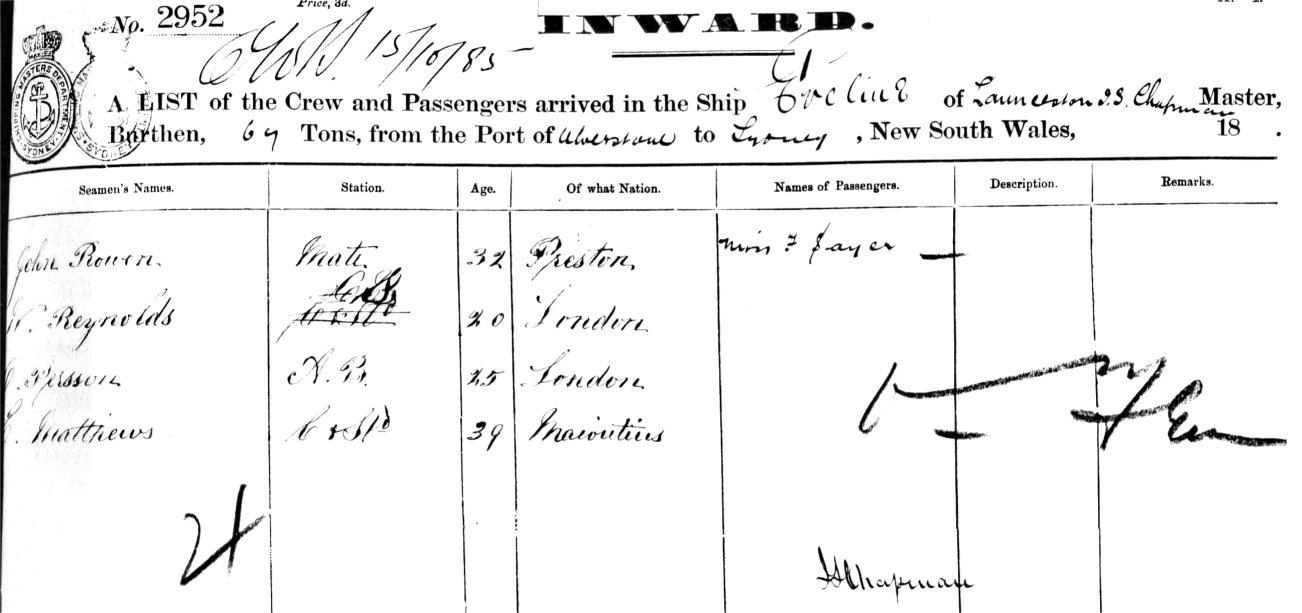 Price, 3d.
No. 2952
INWARD.
15/10/85
A LIST of the Crew and Passengers arrived in the Ship Eveline of Launceston J.S. Chapman Master,
Burthen, 69 Tons, from the Port of Ulverstone to Sydney, New South Wales, 18 .
SHIPPING MASTERS DEPARTMENT SYDNEY
Seamen's Names. Station. Age. Of what Nation. Names of Passengers. Description. Remarks.
John Rowen Mate 32 Preston Miss F Sayer —
W. Reynolds A.B. 20 London
Persson A.B. 25 London
Matthews C & Std 39 Maioutius
4
JSChapman